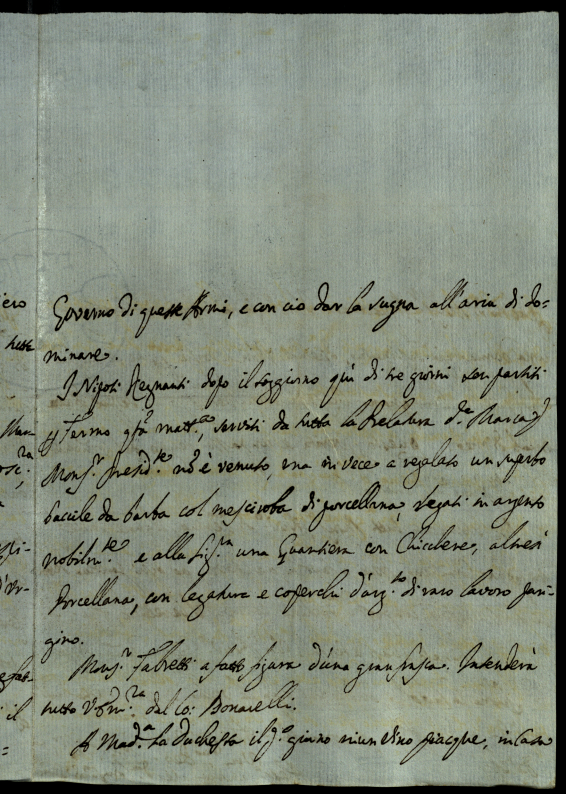 iero
Governo di queste Armi, e con ciò dar la sugna all'aria di do=
minare.
I Nipoti Regnanti dopo il soggiorno quì di tre giorni son partiti
p Fermo qta matta, serviti da tutta la Prelatura d.a Marca
Monsr. Presid.te nõ è venuto, ma in vece a regalato un superbo
bacile da barba col mesciroba di porcellana, legati in argento
nobilm.te e alla Sig.ra una Guantiera con Chicchere, altresì
Porcellana, con legature e coperchi d'arg.to di raro lavoro pari=
gino.
Monsr. Fabretti a fatto figura d'una gran frasca. Intenderà
tutto V.S.Ill.ma dal Co: Bonarelli.
A Mad.a la Duchessa il p.o giorno niun Vino piacque, in Casa